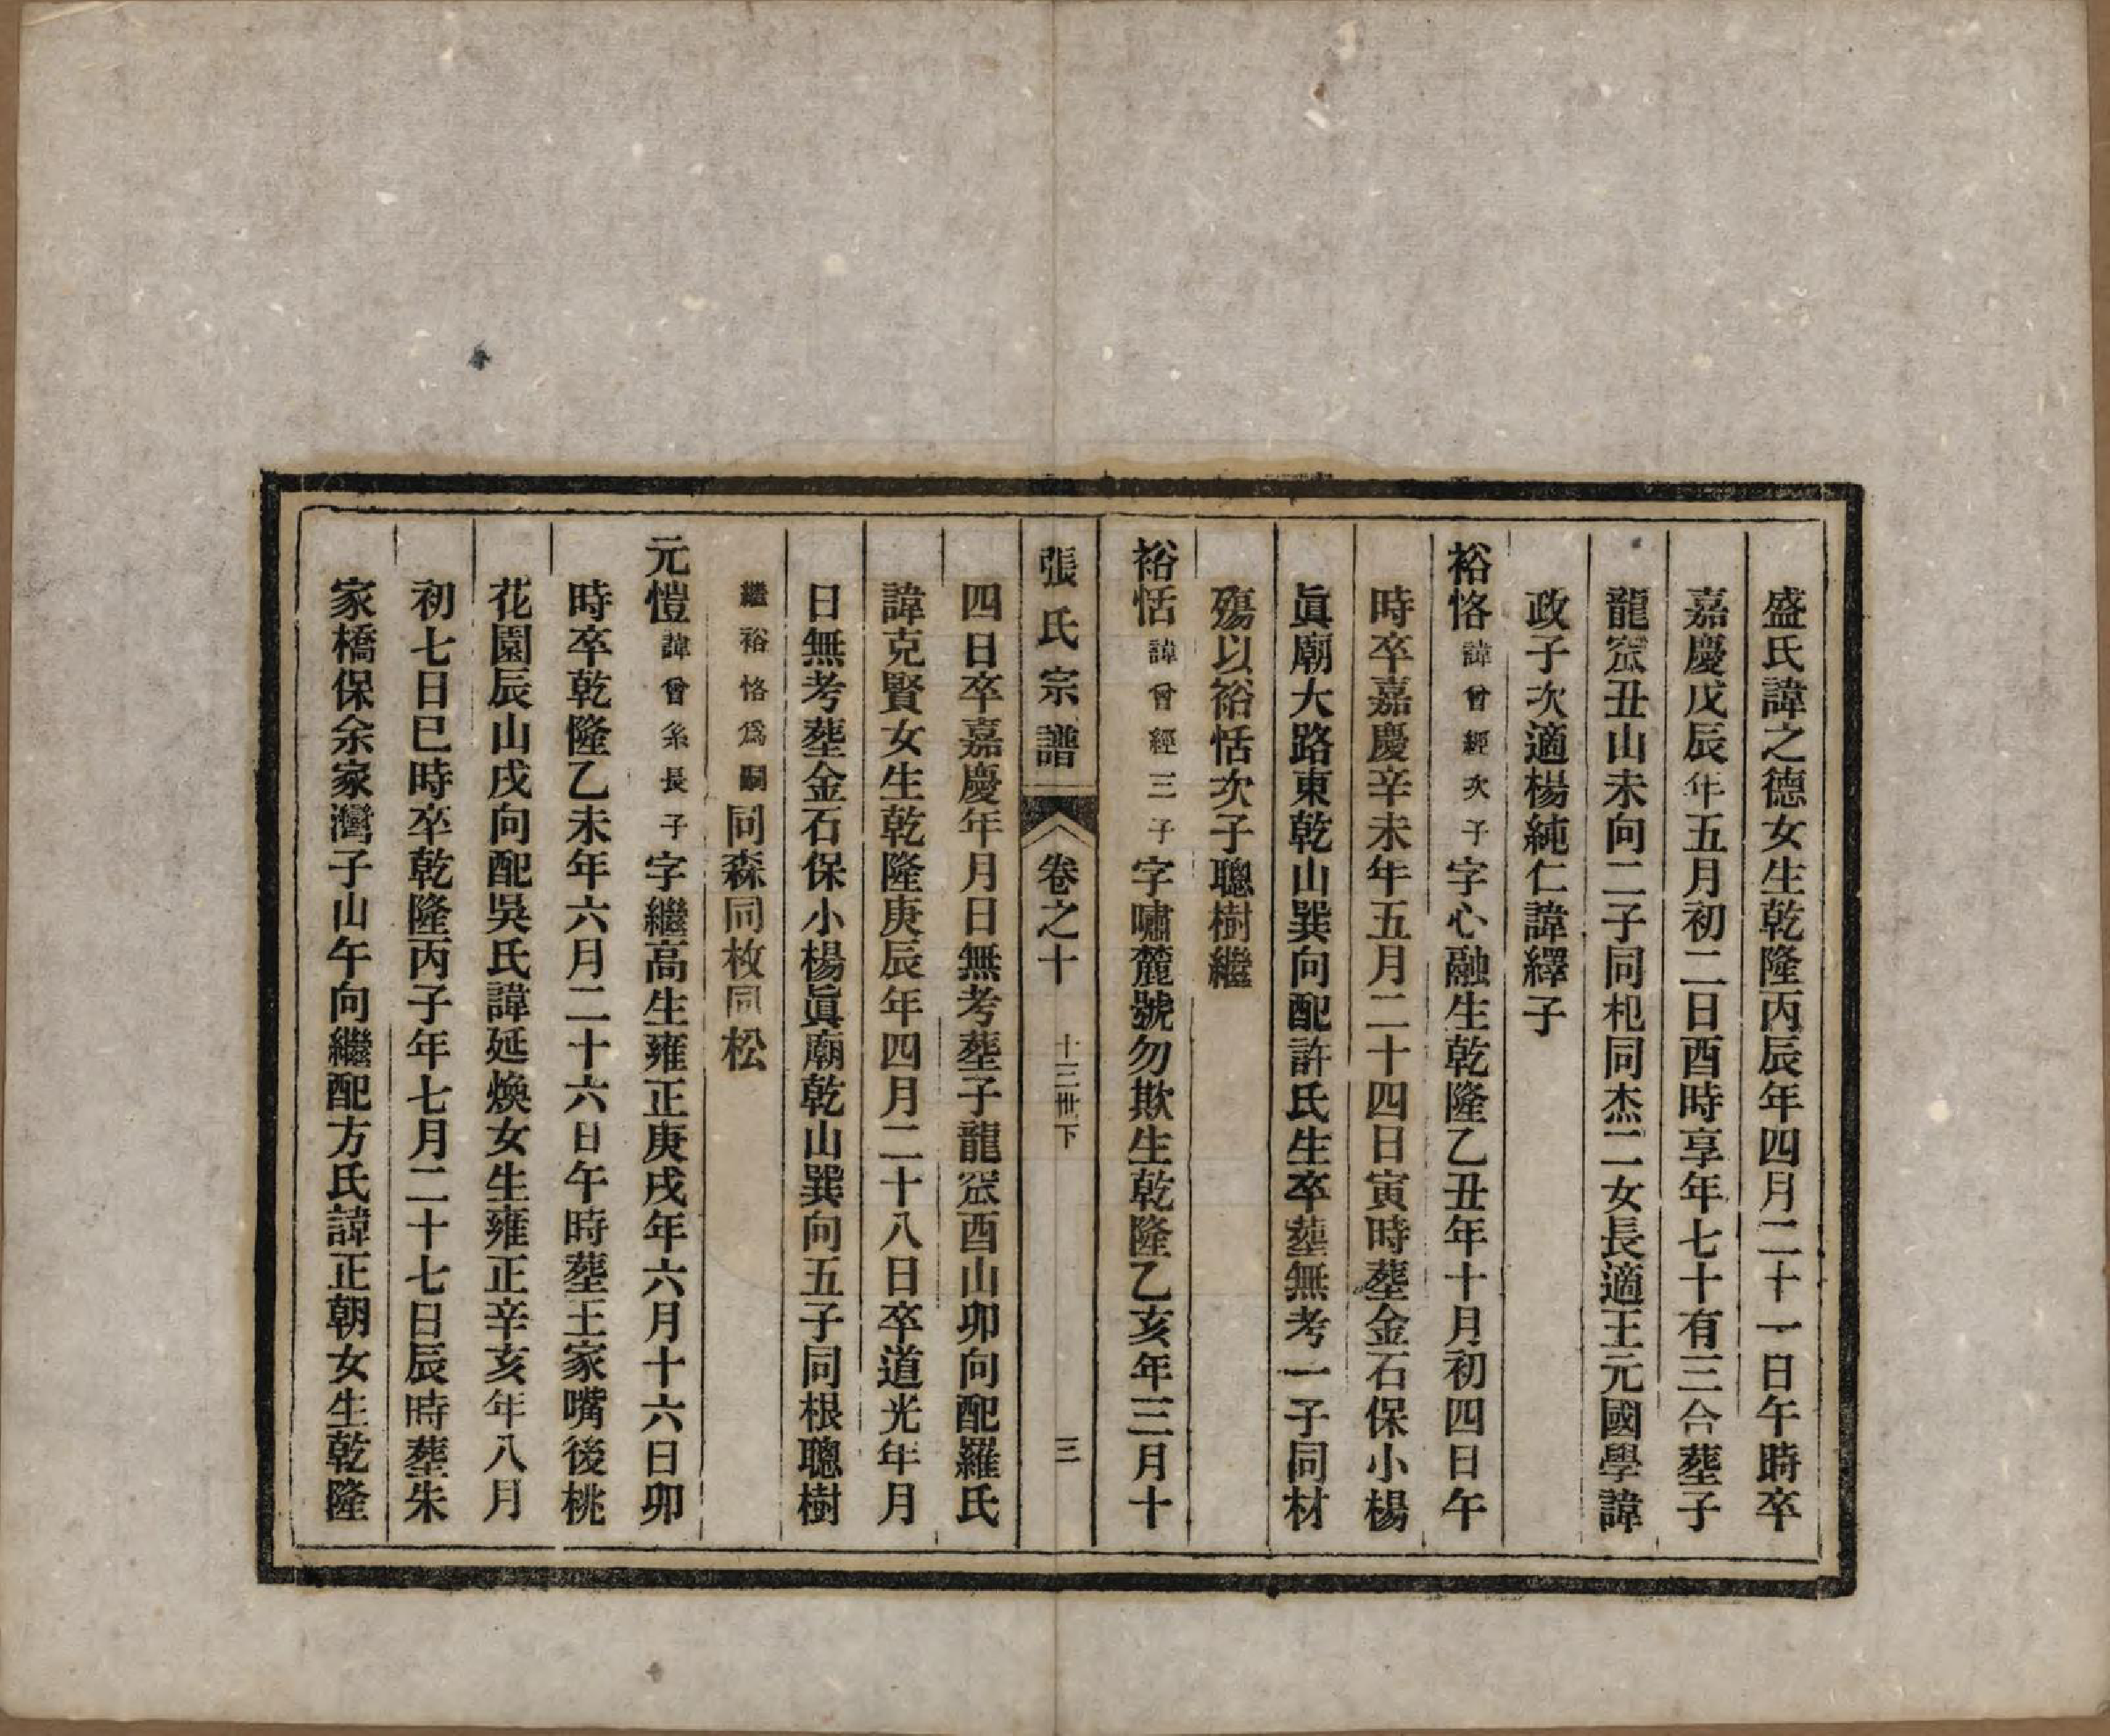 盛氏諱之德女生乾隆丙辰年四月二十一日午時卒
嘉慶戊辰年五月初二日酉時享年七十有三合葬子
龍窊丑山未向二子同杞同杰二女長適王元國學諱
政子次適楊純仁諱繹子
裕恪諱曾經次子字心融生乾隆乙丑年十月初四日午
時卒嘉慶辛未年五月二十四日寅時葬金石保小楊
眞廟大路東乾山巽向配許氏生卒葬無考一子同材
殤以裕恬次子聰樹繼
裕恬諱曾經三子字嘯麓號勿欺生乾隆乙亥年三月十
張氏宗譜 卷之十 十三世下 三
四日卒嘉慶年月日無考葬子龍窊酉山卯向配羅氏
諱克賢女生乾隆庚辰年四月二十八日卒道光年月
日無考葬金石保小楊眞廟乾山巽向五子同根聰樹
繼裕恪爲嗣同森同枚同松
元愷諱曾糸長子字繼高生雍正庚戌年六月十六日卯
時卒乾隆乙未年六月二十六日午時葬王家嘴後桃
花園辰山戌向配吳氏諱延煥女生雍正辛亥年八月
初七日巳時卒乾隆丙子年七月二十七日辰時葬朱
家橋保余家灣子山午向繼配方氏諱正朝女生乾隆